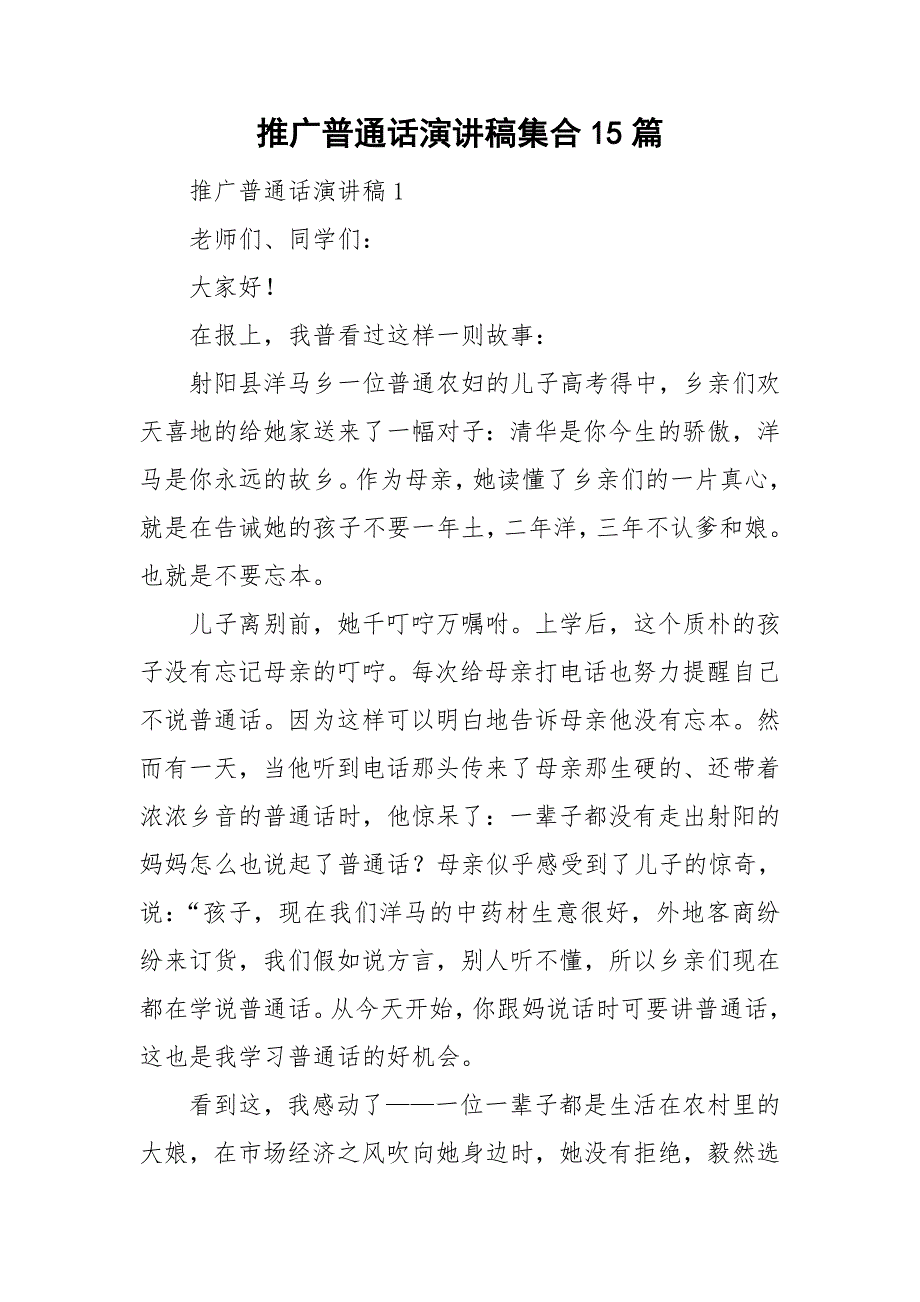 推广普通话演讲稿集合15篇
推广普通话演讲稿1
老师们、同学们：
大家好！
在报上，我普看过这样一则故事：
射阳县洋马乡一位普通农妇的儿子高考得中，乡亲们欢
天喜地的给她家送来了一幅对子：清华是你今生的骄傲，洋
马是你永远的故乡。作为母亲，她读懂了乡亲们的一片真心，
就是在告诫她的孩子不要一年土，二年洋，三年不认爹和娘。
也就是不要忘本。
儿子离别前，她千叮咛万嘱咐。上学后，这个质朴的孩
子没有忘记母亲的叮咛。每次给母亲打电话也努力提醒自己
不说普通话。因为这样可以明白地告诉母亲他没有忘本。然
而有一天，当他听到电话那头传来了母亲那生硬的、还带着
浓浓乡音的普通话时，他惊呆了：一辈子都没有走出射阳的
妈妈怎么也说起了普通话？母亲似乎感受到了儿子的惊奇，
说：“孩子，现在我们洋马的中药材生意很好，外地客商纷
纷来订货，我们假如说方言，别人听不懂，所以乡亲们现在
都在学说普通话。从今天开始，你跟妈说话时可要讲普通话，
这也是我学习普通话的好机会。
看到这，我感动了——一位一辈子都是生活在农村里的
大娘，在市场经济之风吹向她身边时，她没有拒绝，毅然选